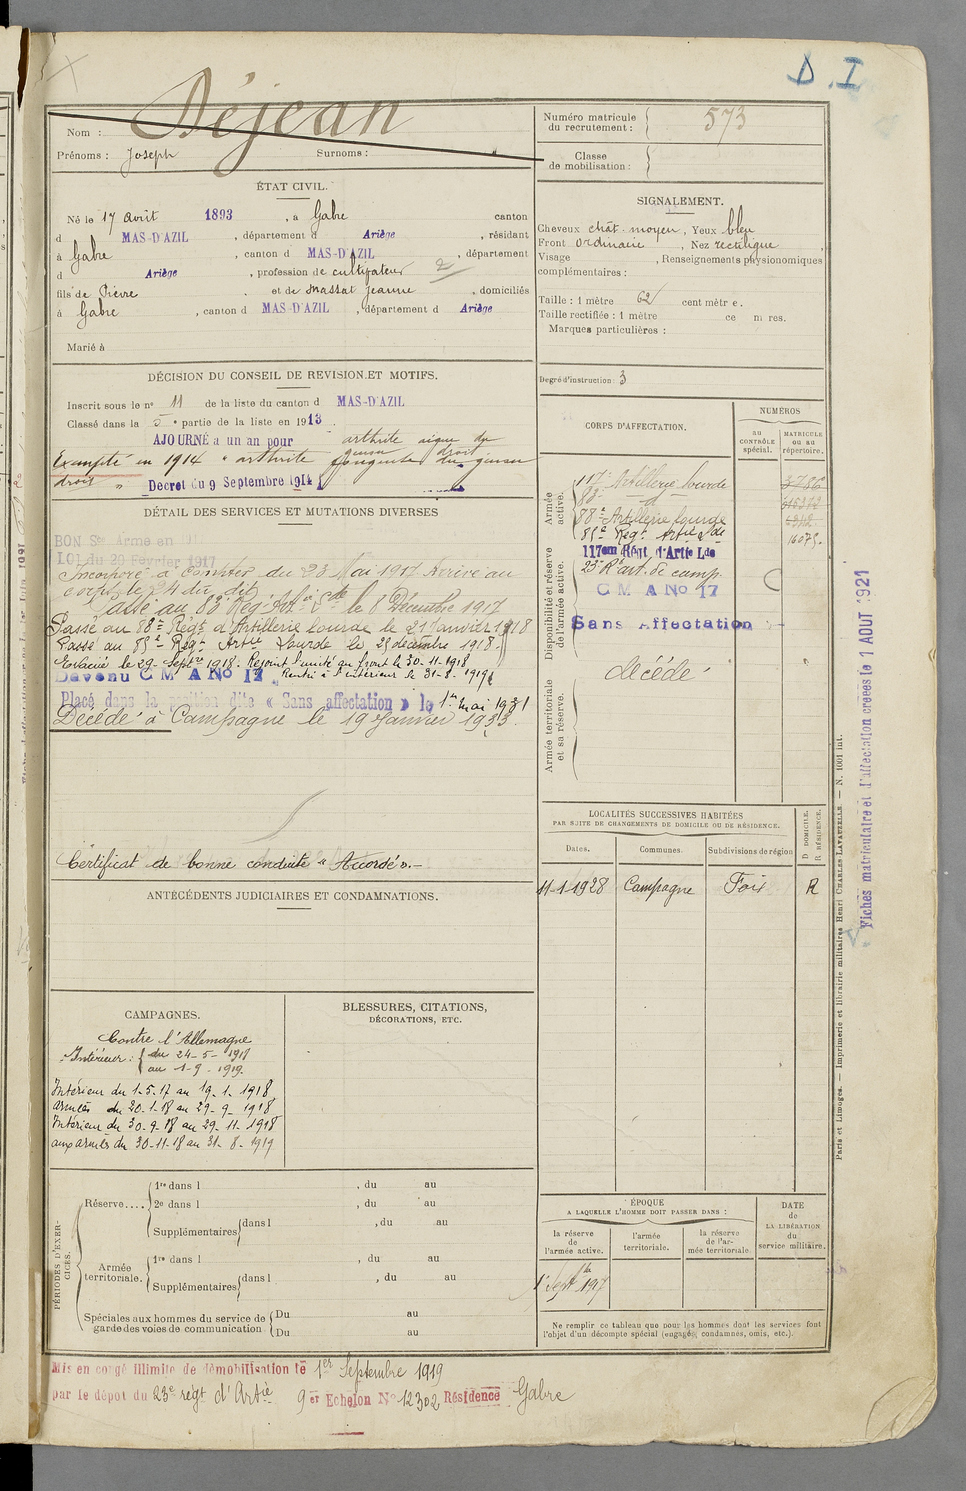 D.I
Nom : Déjean
Prénoms : Joseph Surnoms : "
Numéro matricule
du recrutement : 573
Classe
de mobilisation :
ÉTAT CIVIL.
Né le 17 Avril 1893, à Gabre canton
d MAS-D'AZIL, département d Ariège, résidant
à Gabre, canton d MAS-D'AZIL, département
d Ariège, profession de cultivateur 2
fils de Pierre et de Massat Jeanne, domiciliés
à Gabre, canton d MAS-D'AZIL, département d Ariège
Marié à
SIGNALEMENT.
Cheveux chât. moyen, Yeux bleu
Front ordinaire, Nez rectiligne,
Visage , Renseignements physionomiques
complémentaires :
Taille : 1 mètre 62 centimètre.
Taille rectifiée : 1 mètre ce m res.
Marques particulières :
Degré d'instruction : 3
DÉCISION DU CONSEIL DE REVISION ET MOTIFS.
Inscrit sous le nº 11 de la liste du canton d MAS-D'AZIL
Classé dans la 5e partie de la liste en 1913.
AJOURNÉ à un an pour arthrite aigue du
genou droit
Exempté en 1914 " arthrite fongueuse du genou
droit " Decret du 9 Septembre 1914
DÉTAIL DES SERVICES ET MUTATIONS DIVERSES
BON Sce Armé en
LOI du 20 Février 1917
Incorporé à compter du 23 Mai 1917 Arrivé au
corps le 24 du dit
Passé au 83e Rég. Art. Lde le 8 Décembre 1917
Passé au 88e Régt d'Artillerie lourde le 21 Janvier 1918
Passé au 85e Régt Artie Lourde le 25 décembre 1918.
Evacué le 29. Septre 1918. Rejoint l'unité au front le 30.11.1918
Devenu C M A No 17 Rentré à l'intérieur le 31-8-1919
Placé dans la position dite « Sans affectation » le 1er mai 1931
Décédé à Campagne le 19 Janvier 1933.
Certificat de bonne conduite « Accordé ».
CORPS D'AFFECTATION.
NUMÉROS
AU
CONTRÔLE
spécial.
MATRICULE
OU AU
répertoire.
Armée
active.
117e Artillerie lourde
83e d
88e Artillerie lourde
85e Régt Artie Lde 16075.
Disponibilité et réserve
de l'armée active.
117em Régt d'Artie Lde
23e R. art. de camp.
C M A No 17
Sans Affectation
Armée territoriale
et sa réserve.
décédé
ANTÉCÉDENTS JUDICIAIRES ET CONDAMNATIONS.
LOCALITÉS SUCCESSIVES HABITÉES
PAR SUITE DE CHANGEMENTS DE DOMICILE OU DE RÉSIDENCE.
Dates. Communes. Subdivisions de région
D. DOMICILE.
R. RÉSIDENCE.
11-1-1928 Campagne Foix R
CAMPAGNES.
Contre l'Allemagne
Intérieur : du 24-5-1918
au 1-9-1919.
Intérieur du 1-5-17 au 19-1-1918
armées du 20-1-18 au 29-9-1918
Intérieur du 30-9-18 au 29-11-1918
aux armées du 30-11-18 au 31-8-1919
BLESSURES, CITATIONS,
DÉCORATIONS, ETC.
PÉRIODES D'EXERCICES.
Réserve....
1re dans l , du au
2e dans l , du au
Supplémentaires dans l , du au
Armée
territoriale.
1re dans l , du au
Supplémentaires dans l , du au
Spéciales aux hommes du service de
garde des voies de communication.
Du au
Du au
ÉPOQUE
A LAQUELLE L'HOMME DOIT PASSER DANS :
la réserve
de
l'armée active.
l'armée
territoriale.
la réserve
de l'armée territoriale.
DATE
de
LA LIBÉRATION
du
service militaire.
Ne remplir ce tableau que pour les hommes dont les services font
l'objet d'un décompte spécial (engagés, condamnés, omis, etc.).
Mis en congé illimité de démobilisation le 1er Septembre 1919
par le dépot du 23e régt d'Artie 9er Echelon No 12302 Résidence Gabre
Paris et Limoges. — Imprimerie et librairie militaires Henri CHARLES-LAVAUZELLE. — N. 1001 int.
Fiches matriculaire et d'affectation créées le 1 AOUT 1921